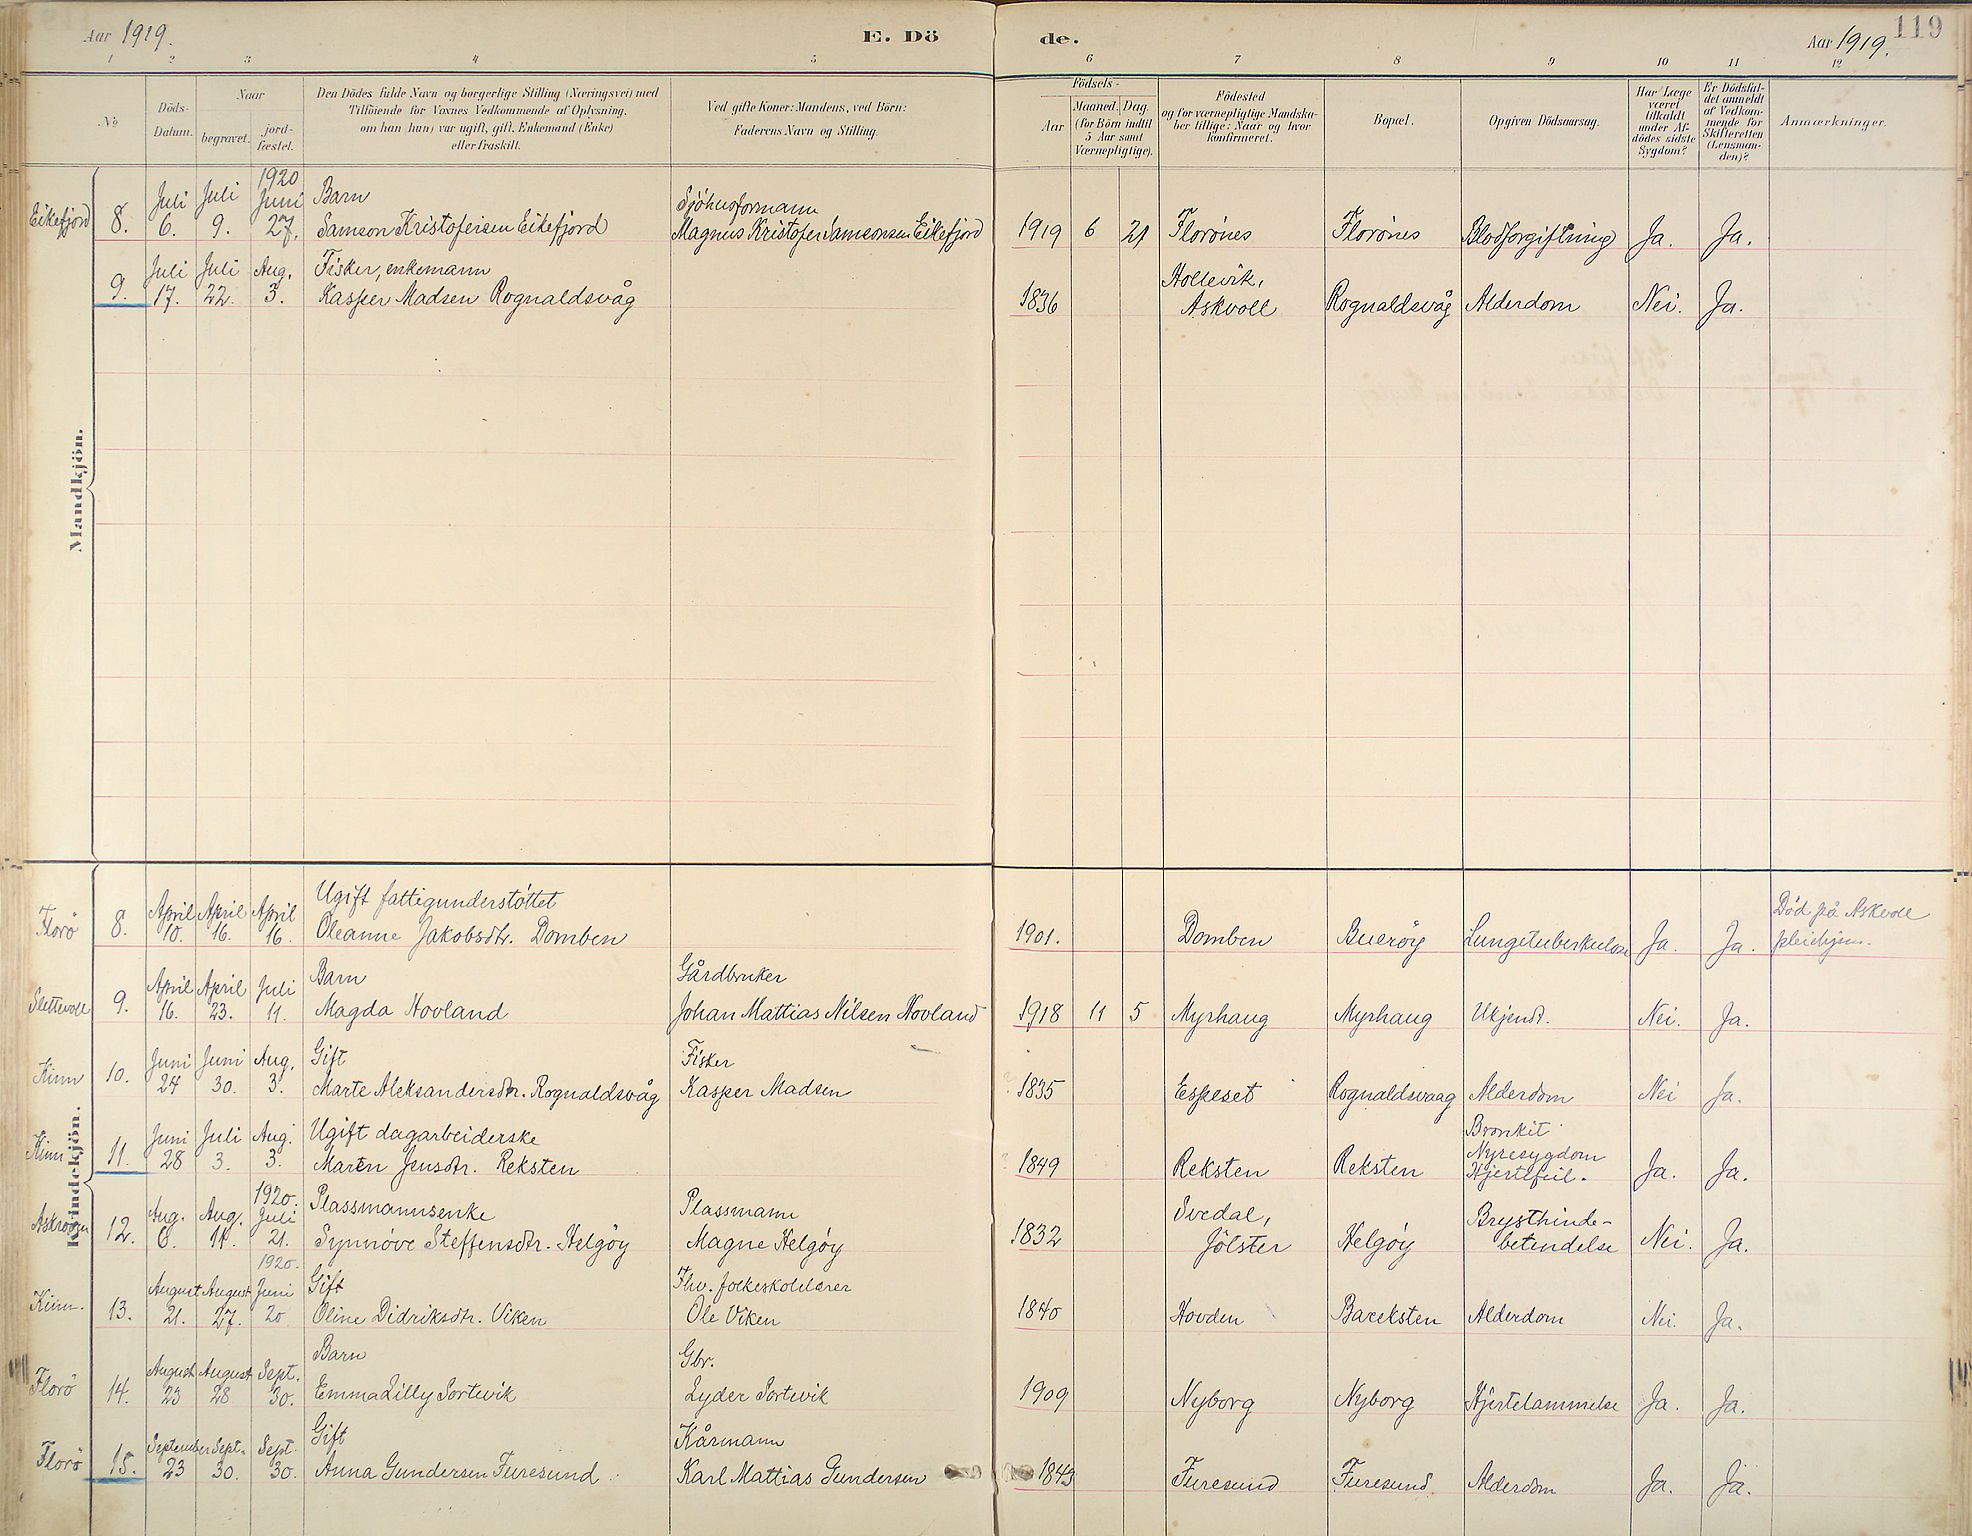 Aar 1919.
E. Dö
de.
Aar 1919.
119
1 2 3 4 5 6 7 8 9 10 11 12
No
Döds-
Datum.
Naar
begravet.
jord-
fæstet.
Den Dödes fulde Navn og borgerlige Stilling (Næringsvei) med
Tilföiende for Voxnes Vedkommende af Oplysning,
om han (hun) var ugift, gift, Enkemand (Enke)
eller fraskilt.
Ved gifte Koner: Mandens, ved Börn:
Faderens Navn og Stilling.
Födsels-
Aar
Maaned. Dag.
(for Börn indtil
5 Aar samt
Værnepligtige).
Födested
og for værnepligtige Mandska-
ber tillige: Naar og hvor
konfirmeret.
Bopæl.
Opgiven Dödsaarsag.
Har Læge
været
tilkaldt
under Af-
dödes sidste
Sygdom?
Er Dödsfal-
det anmeldt
af Vedkom-
mende for
Skifteretten
(Lensman-
den)?
Anmærkninger.
Mandkjön.
1920
Juli Juli Juni Barn Sjöhusformann
Eikefjord 8. 6. 9. 27. Samson Kristofersen Eikefjord Magnus Kristofer Samsonsen Eikefjord 1919 6 21 Florönes Florönes Blodforgiftning Ja. Ja.
Juli Juli Aug. Fisker, enkemann Hollevik,
9. 17. 22. 3. Kasper Madsen Rognaldsvåg 1836 Askvoll Rognaldsvåg Alderdom Nei. Ja.
Kvindekjön.
April April April Ugift fattigunderstöttet Död på Askvoll
Florö 8. 10. 16. 16. Oleanne Jakobsdtr. Domben 1901. Domben Bueröy Lungetuberkulose Ja. Ja. pleiehjem.
April April Juli Barn Gårdbruker
Slettevoll 9. 16. 23. 11. Magda Hovland Johan Mattias Nilsen Hovland 1918 11 5 Myrhaug Myrhaug Ukjendt. Nei. Ja.
Juni Juni Aug. Gift Fisker
Kinn 10. 24 30. 3. Marte Aleksandersdtr. Rognaldsvåg Kasper Madsen 1835 Espeset Rognaldsvaag Alderdom Nei Ja.
Juni Juli Aug. Ugift dagarbeiderske Bronkit
Nyresygdom
Kinn 11. 28 3. 3. Marten Jensdtr. Reksten 1849 Reksten Reksten Hjertefeil. Ja. Ja.
1920.
Aug. Aug. Juli Plassmannsenke Plassmann Svedal, Brysthinde-
Askrova 12. 6. 11. 21. Synnöve Steffensdtr. Helgöy Magne Helgöy 1832 Jölster Helgöy betendelse Nei. Ja.
1920.
August August Juni Gift Fhv. folkeskolelærer
Kinn. 13. 21. 27. 20 Oline Didriksdtr. Viken Ole Viken 1840 Hovden Bareksten Alderdom Nei. Ja.
August August Sept. Barn Gbr.
Florö 14. 23 28 30. Emma Lilly Sortevik Lyder Sortevik 1909 Nyborg Nyborg Hjertelammelse Ja. Ja.
September Sept. Sept. Gift Kårmann
Florö 15. 23 30. 30. Anna Gundersen Furesund Karl Mattias Gundersen 1843 Furesund Furesund Alderdom Ja. Ja.